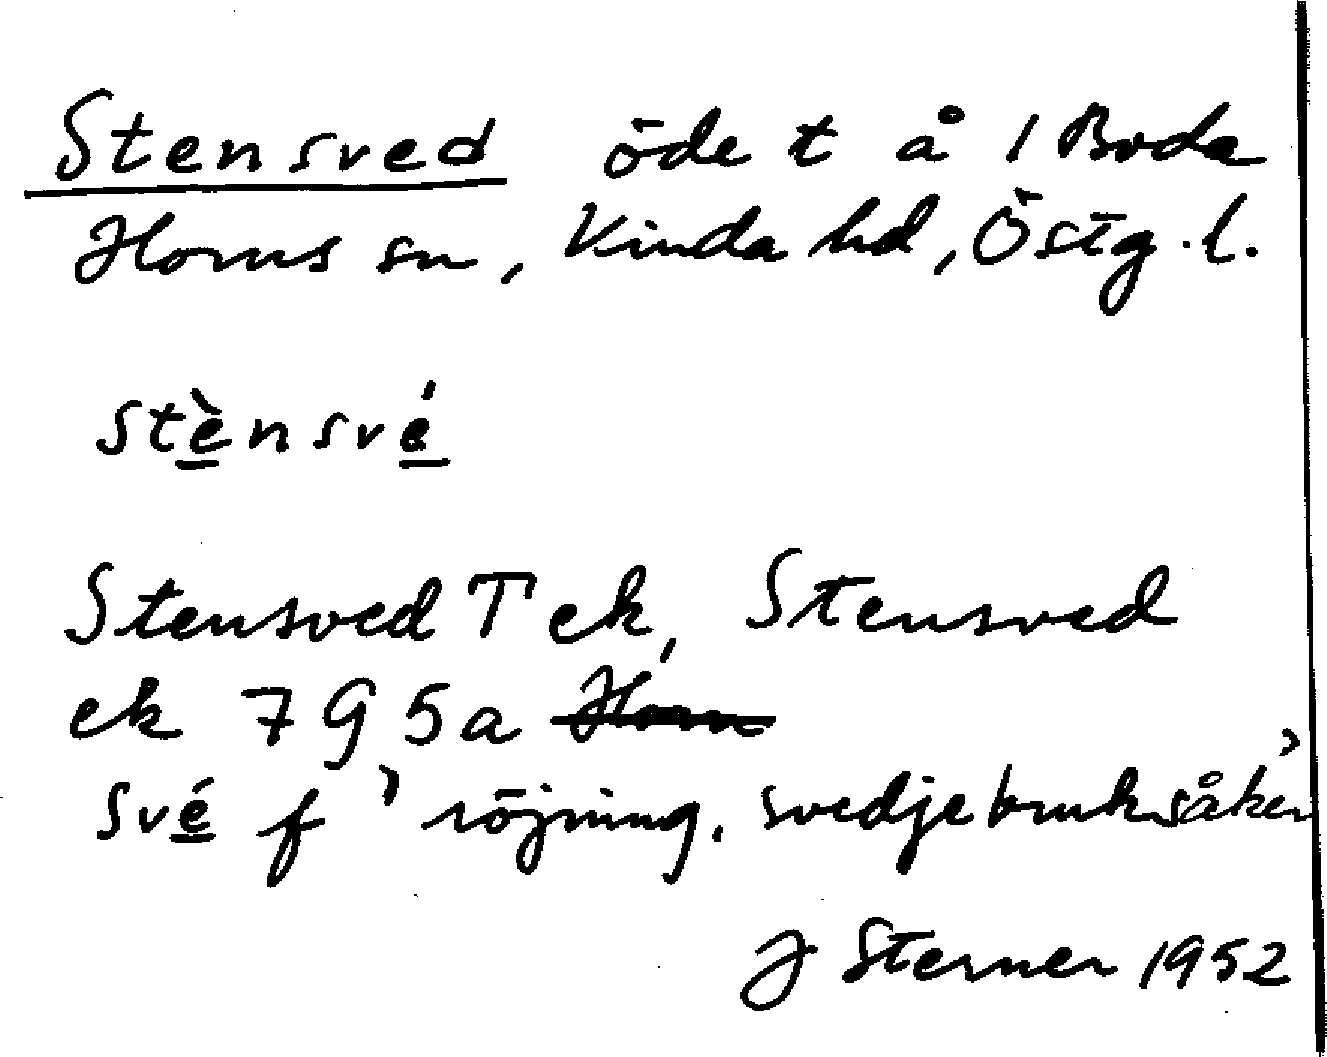 Stensved öde t å 1 Boda
Horns sn, Kinda hd, Östg.l.
stènsvé
Stensved T ek, Stensved
ek 795a Horn
své f ’röjning, svedjebruksåker’
J Sterner 1952